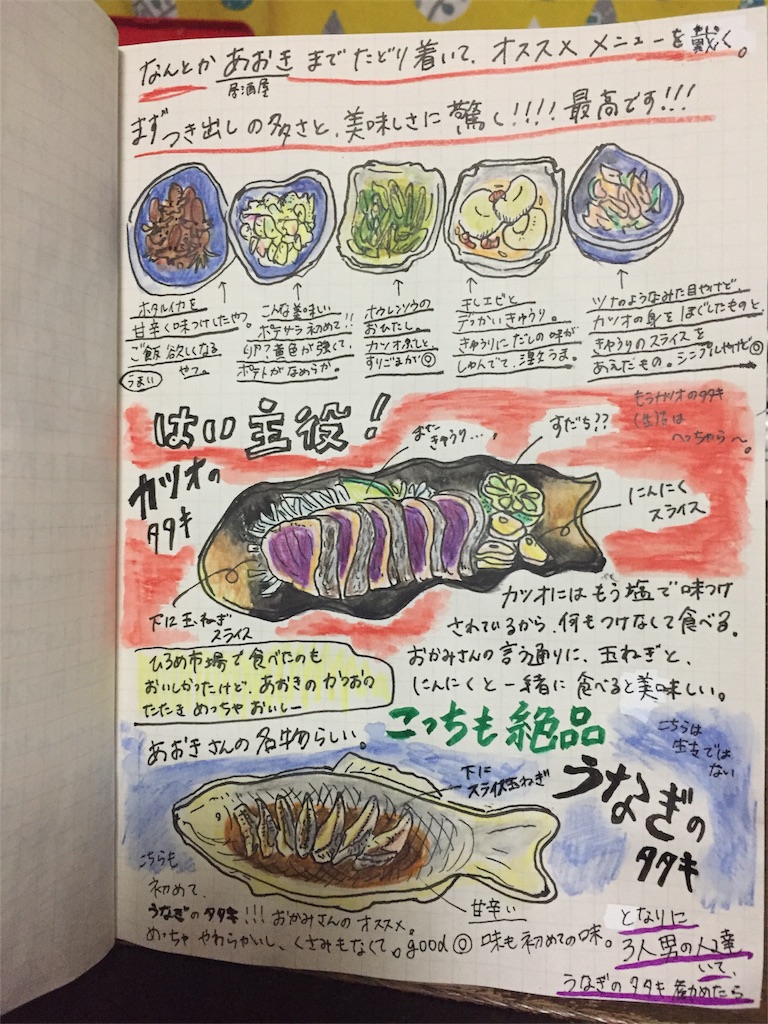 なんとか あおき まで たどり着いて、オススメ メニューを 戴く。
居酒屋
まず つき出し の 多さと、美味しさに 驚く!!!! 最高です!!!
ホタルイカを
甘辛く味つけしたやつ。
ご飯 欲しくなる
やつ。
うまい
こんな美味しい
ポテサラ 初めて!!
黄色が強くて、
ポテトがなめらか。
ホウレンソウの
おひたし。
カツオぶしと
すりごまかで◎
干しエビと
デッかいきゅうり。
きゅうりにだしの味が
しゅんでて、激うま。
ツナのようなみた目やけど、
カツオの身をほぐしたものと、
きゅうりのスライスを
あえたもの。シンプルやけど◎
はい 主役!
カツオの
タタキ
また
きゅうり…。
すだち??
もうカツオのタタキ
へっちゃら〜。
にんにく
スライス
下に玉ねぎ
スライス
カツオにはもう塩で味つけ
されているから、何もつけなして食べる。
おかみさんの言う通りに、玉ねぎと、
にんにくと一緒に食べると美味しい。
ひろめ市場で食べたのも
おいしかったけど、あおきのかつおの
たたき めっちゃ おいしー
あおきさんの名物らしい。
こっちも絶品
こちらは
ではない
うなぎの
タタキ
下に
スライス玉ねぎ
こちらも
初めて、
うなぎのタタキ!!! おかみさんのオススメ。
甘辛い
めっちゃ やわらかいし、くさみもなくて。good◎ 味も初めての味。
となりに
3人男の人達
いて、
うなぎのタタキ 勧めたら